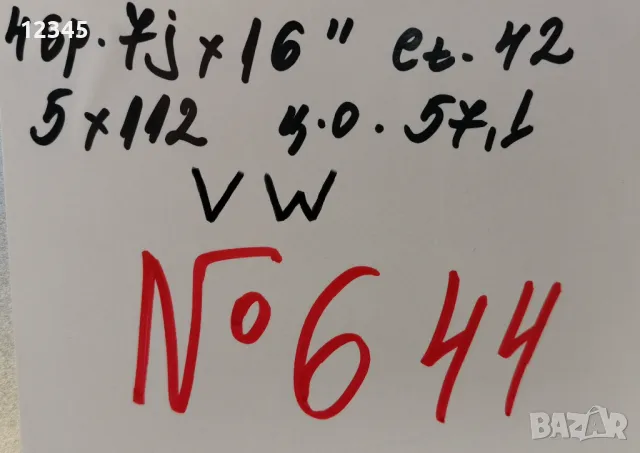 12345
4бр. 7j x 16" et. 42
5 x 112 ц.о. 57,1
VW
№ 644
BAZAR